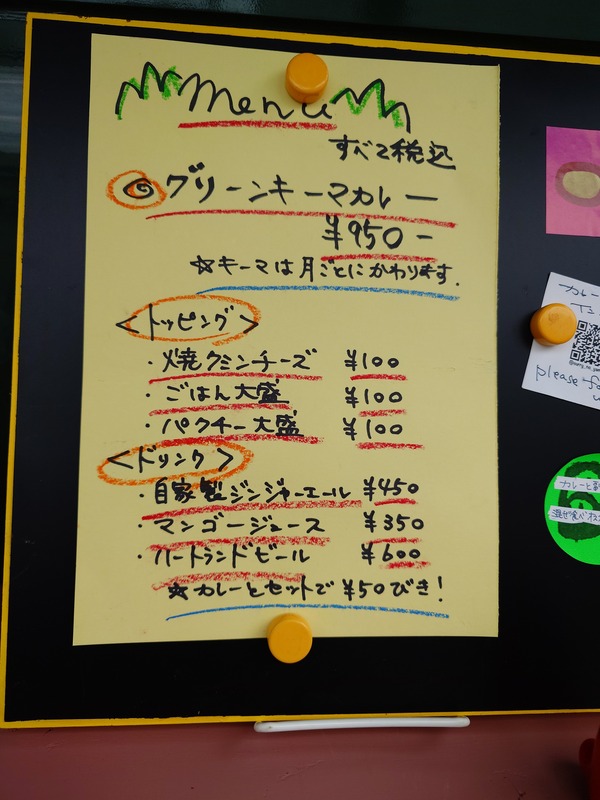 Menu
すべて税込
◎グリーンキーマカレー
¥950-
☆キーマは月ごとにかわります.
<トッピング>
・焼クミンチーズ ¥100
・ごはん大盛 ¥100
・パクチー大盛 ¥100
<ドリンク>
・自家製ジンジャーエール ¥450
・マンゴージュース ¥350
・ハートランドビール ¥600
☆カレーとセットで¥50びき!
カレー
please
カレーと
混ぜ食べ